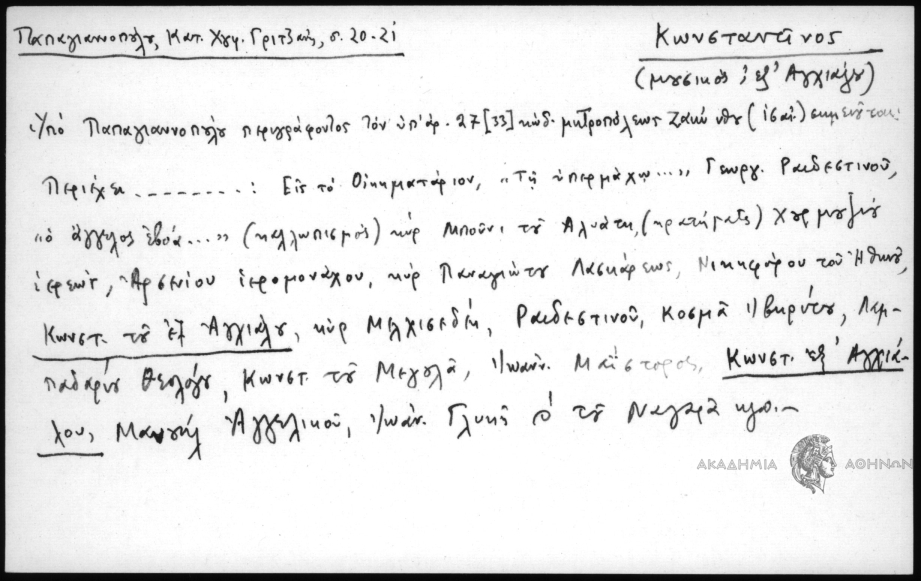 Παπαγιαννοπούλου, Κατ. Χφφ. Γριτζάνη, σ. 20-21
Κωνσταντῖνος
(μουσικὸς ἐξ Ἀγχιάλου)
Ὑπὸ Παπαγιαννοπούλου περιγράφοντος τὸν ὑπ' ἀρ. 27 [33] κώδ. μητροπόλεως Ζακύνθου σημειοῦται:
Περιέχει ........: Εἰς τὸ Οἰκηματάριον, „Τῇ ὑπερμάχῳ..." Γεωργ. Ραιδεστινοῦ,
„ὁ ἄγγελος ἐβόα..." (καλλωπισμὸς) κὺρ Μπούνι τοῦ Ἀλυάτη, (κρατήματα) Χουρμουζίου
ἱερέως, Ἀρσενίου ἱερομονάχου, κὺρ Παναγιώτου Λασκάρεως, Νικηφόρου τοῦ Ἠθικοῦ,
Κωνστ. τοῦ ἐξ Ἀγχιάλου, κὺρ Μελχισεδέκ, Ραιδεστινοῦ, Κοσμᾶ Ἰβηρίτου, Λαμ-
παδαρίου Θεολόγου, Κωνστ. τοῦ Μαγουλᾶ, Ἰωάνν. Μαΐστορος, Κωνστ. ἐξ Ἀγχιά-
λου, Μανουὴλ Ἀγγελικοῦ, Ἰωάν. Γλυκῆ ὁ τοῦ Ναγαρᾶ
ΑΚΑΔΗΜΙΑ ΑΘΗΝΩΝ